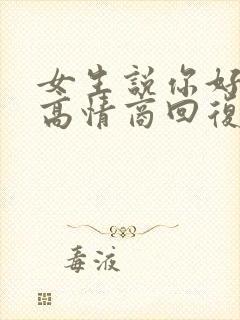 女生說你好
高情商回復
毒液